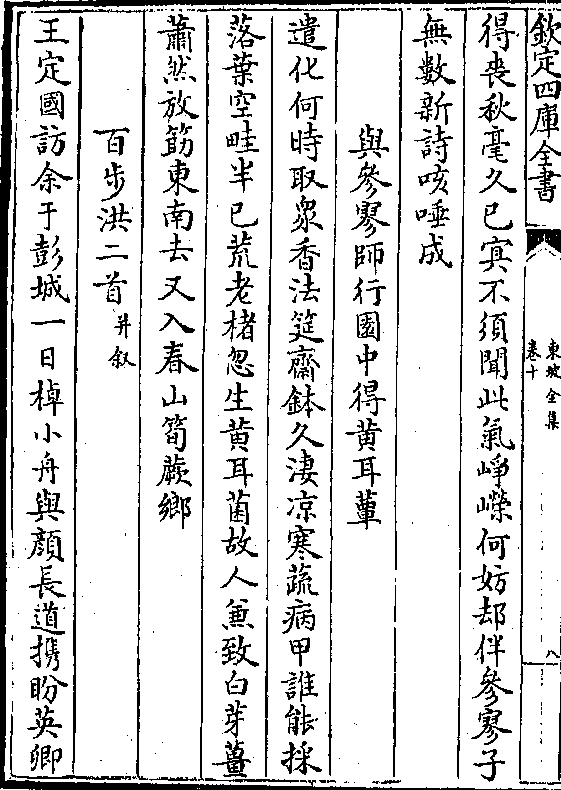 欽定四庫全書
東坡全集
卷十
八
得喪秋毫久已㝠不須聞此氣崢嶸何妨却伴參寥子
無數新詩咳唾成
與參寥師行園中得黄耳蕈
遣化何時取衆香法筵齋鉢久淒凉寒蔬病甲誰能採
落葉空畦半已荒老楮忽生黄耳菌故人兼致白芽薑
蕭然放筯東南去又入春山筍蕨鄉
百步洪二首并叙
王定國訪余于彭城一日棹小舟與顔長道携盼英卿